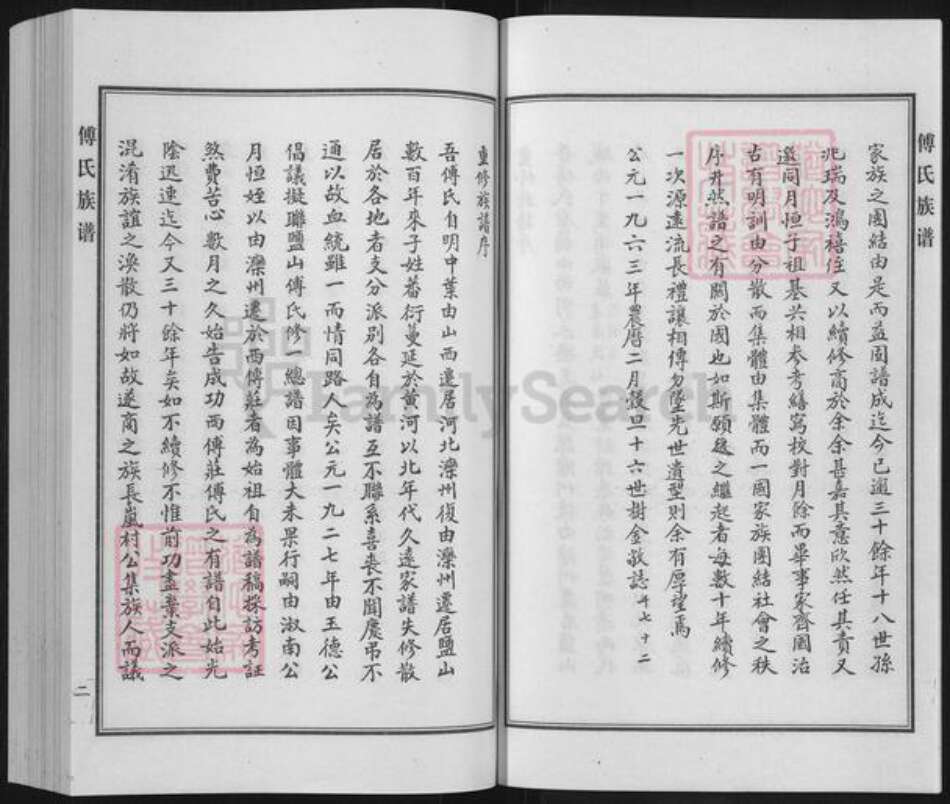 傅氏族谱
家族之團結由是而益固譜成迄今已逾三十餘年十八世孫
兆瑞及鴻禧侄又以續修商於余余甚嘉其意欣然任其責又
邀同月恒子祖基共相参考繕寫校對月餘而畢事家齊國治
古有明訓由分散而集體由集體而一國家族團結社會之秩
序井然譜之有關於國也如斯願後之繼起者每數十年續修
一次源遠流長禮讓相傳勿墜先世遺型則余有厚望焉
公元一九六三年農曆二月穀旦十六世樹金敬誌年七十二
傅氏族谱
重修族譜序
吾傅氏自明中葉由山西遷居河北灤州復由灤州遷居鹽山
數百年來子姓蕃衍蔓延於黃河以北年代久遠家譜失修散
居於各地者支分派別各自為譜互不聯系喜喪不聞慶弔不
通以故血統雖一而情同路人矣公元一九二七年由玉德公
倡議擬聯鹽山傅氏修一總譜因事體大未果行嗣由淑南公
月恒姪以由灤州遷於西傅莊者為始祖自為譜稿採訪考証
煞費苦心數月之久始告成功西傅莊傅氏之有譜自此始光
陰迅速迄今又三十餘年矣如不續修不惟前功盡棄支派之
混淆族誼之渙散仍將如故遂商之族長嵐村公集族人而議
二
FamilySearch